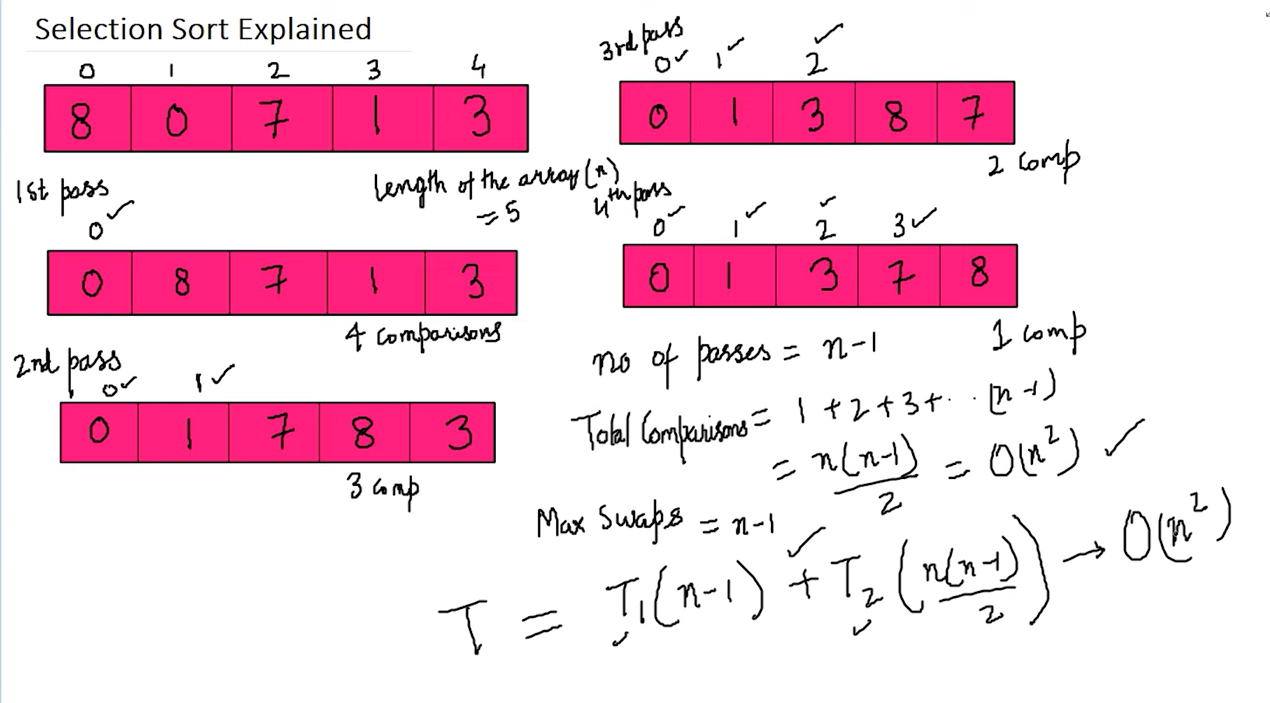 Selection Sort Explained
0 1 2 3 4
8 0 7 1 3
length of the array (n)
= 5
1st pass
0 ✓
0 8 7 1 3
4 comparisons
2nd pass
0 ✓ 1 ✓
0 1 7 8 3
3 comp
3rd pass
0 ✓ 1 ✓ 2 ✓
0 1 3 8 7
2 comp
4th pass
0 ✓ 1 ✓ 2 ✓ 3 ✓
0 1 3 7 8
1 comp
no of passes = n-1
Total Comparisons = 1 + 2 + 3 + . . . (n-1)
= n(n-1)/2 = O(n²) ✓
Max Swaps = n-1 ✓
T = T₁(n-1) + T₂(n(n-1)/2) → O(n²)
✓ ✓